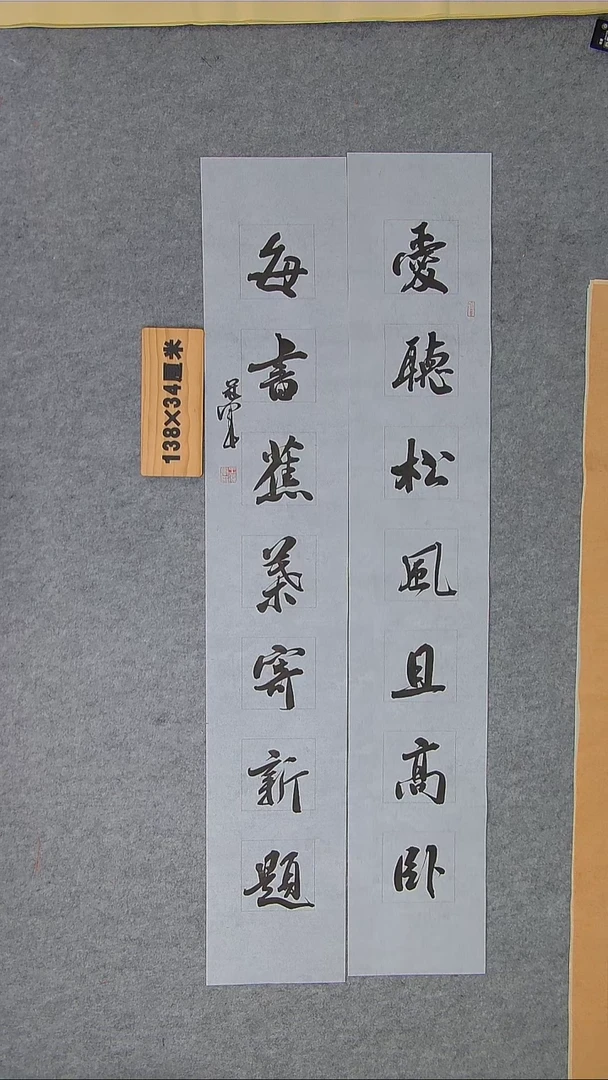 愛聽松風且高卧
每書蕉葉寄新題
138×34厘米